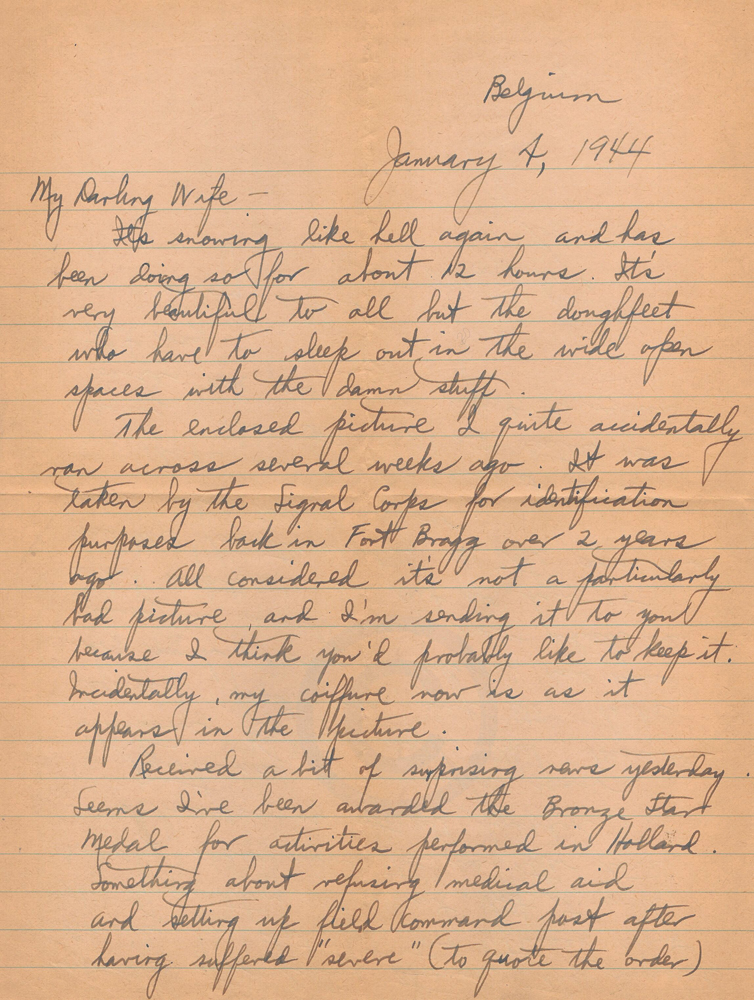 Belgium
January 4, 1944
My Darling Wife –
It's snowing like hell again and has
been doing so for about 12 hours. It's
very beautiful to all but the doughfeet
who have to sleep out in the wide open
spaces with the damn stuff.
The enclosed picture I quite accidentally
ran across several weeks ago. It was
taken by the Signal Corps for identification
purposes back in Fort Bragg over 2 years
ago.. All considered it's not a particularly
bad picture, and I'm sending it to you
because I think you'd probably like to keep it.
Incidentally, my coiffure now is as it
appears in the picture.
Received a bit of surprising news yesterday.
Seems I've been awarded the Bronze Star
Medal for activities performed in Holland.
Something about refusing medical aid
and setting up field command post after
having suffered "severe" (to quote the order)